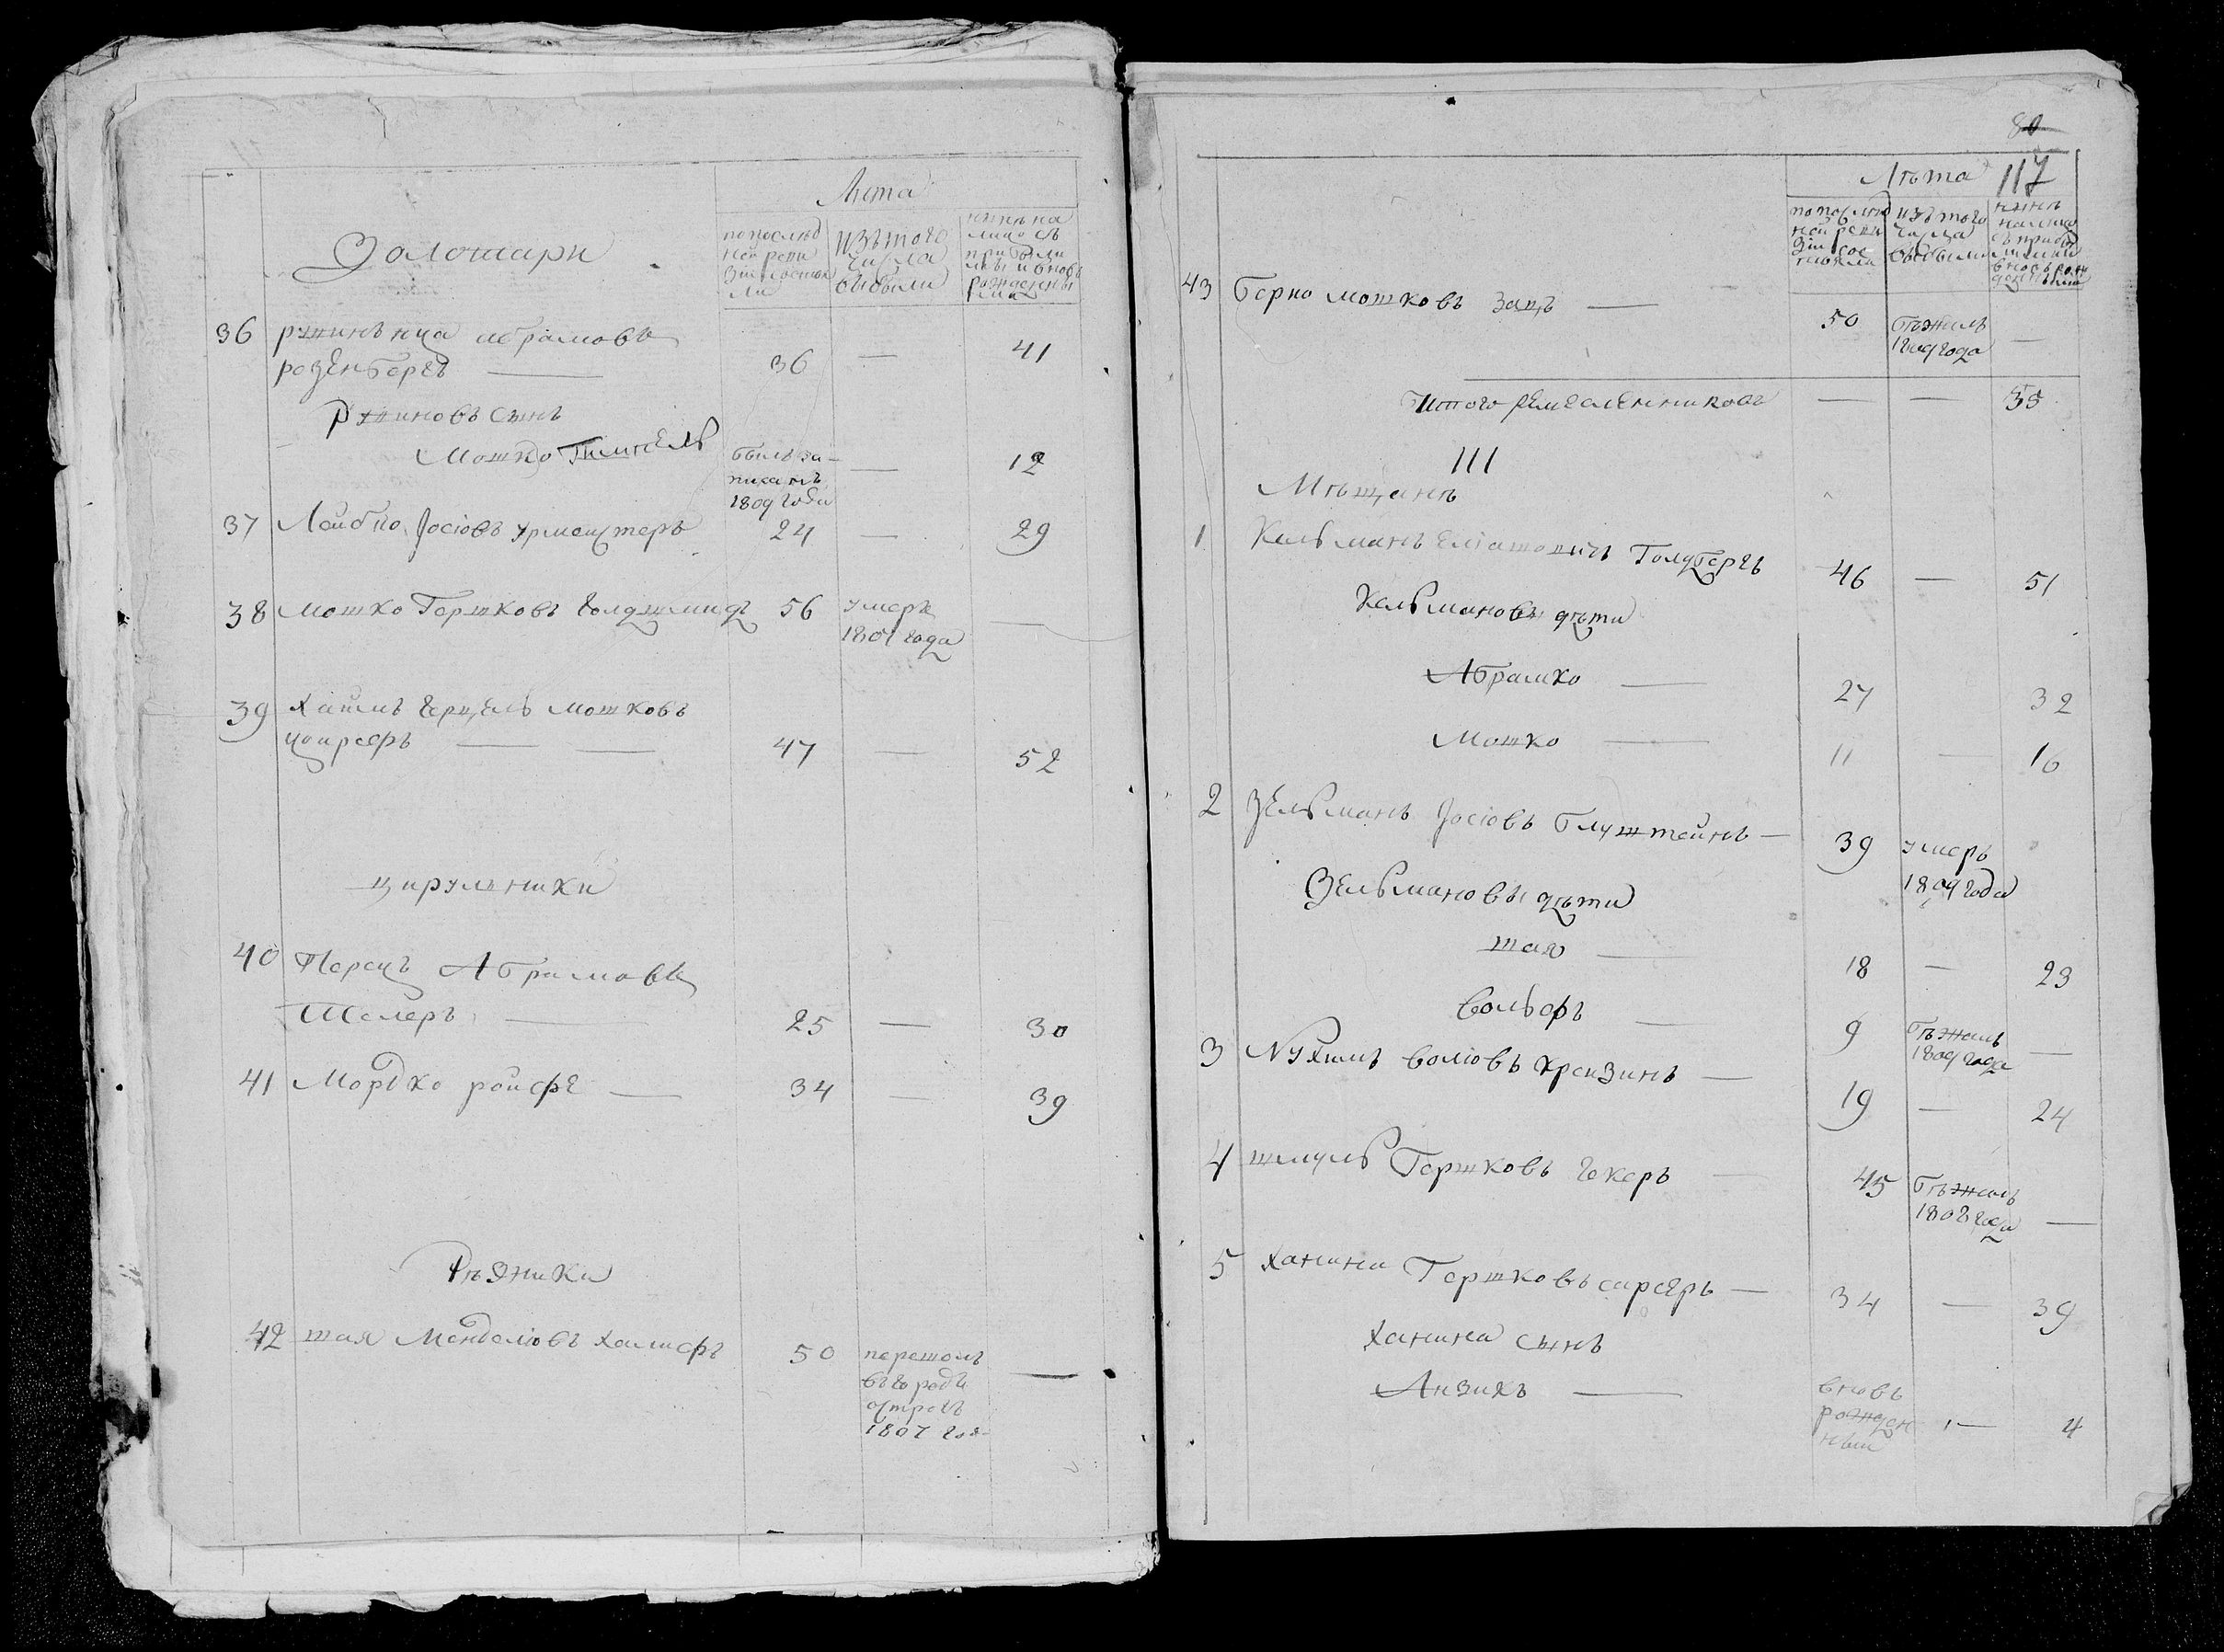 Золотари
Лѣта
по послѣд
ней реви
зіи состоя
ли
изъ того
числа
выбыли
нынѣ на
лицо съ
прибылы
ми и вновь
рожденны
ми
36
Абрамовъ
розенбергъ
36
—
41
сынъ
Мошко Гимпель
былъ за-
писанъ
1809 года
—
12
37
Лейбко Іосіовъ Урмештеръ
24
—
29
38
Мошко Гершковъ Голдшмидъ
56
умеръ
1807 года
—
39
Хаимъ Герцель мошковъ
47
—
52
цирульники
40
Перецъ Абрамовъ
Шелеръ
25
—
30
41
Мордко ройфе
34
—
39
Рѣзники
42
шая Менделіовъ Халифъ
50
перешолъ
въ городъ
острогъ
1807 го-
—
80
117
Лѣта
по послѣд
ней реви
зіи сос
тояли
изъ того
числа
выбыли
нынѣ
на лицо
съ прибы
лыми и
вновь рож
денными
43
Берко мошковъ Защъ
50
бѣжалъ
1809 года
—
Итого ремесленниковъ
—
—
35
III
Мѣщанъ
1
Кельманъ Голдбергъ
46
—
51
Кельмановы дѣти
Абрамко
27
32
Мошко
11
—
16
2
Зельманъ Іосіовъ Глуштейнъ
39
умеръ
1809 года
Зельмановы дѣти
шая
18
—
23
Вольфъ
9
бѣжалъ
1809 года
—
3
Нухимъ Воліовъ Хрензинъ
19
—
24
4
шмуль Гершковъ Гекеръ
45
бѣжалъ
1808 года
—
5
Ханина Гершковъ сарверъ
34
—
39
Ханина сынъ
Аизикъ
вновь
рожден
ный
—
4